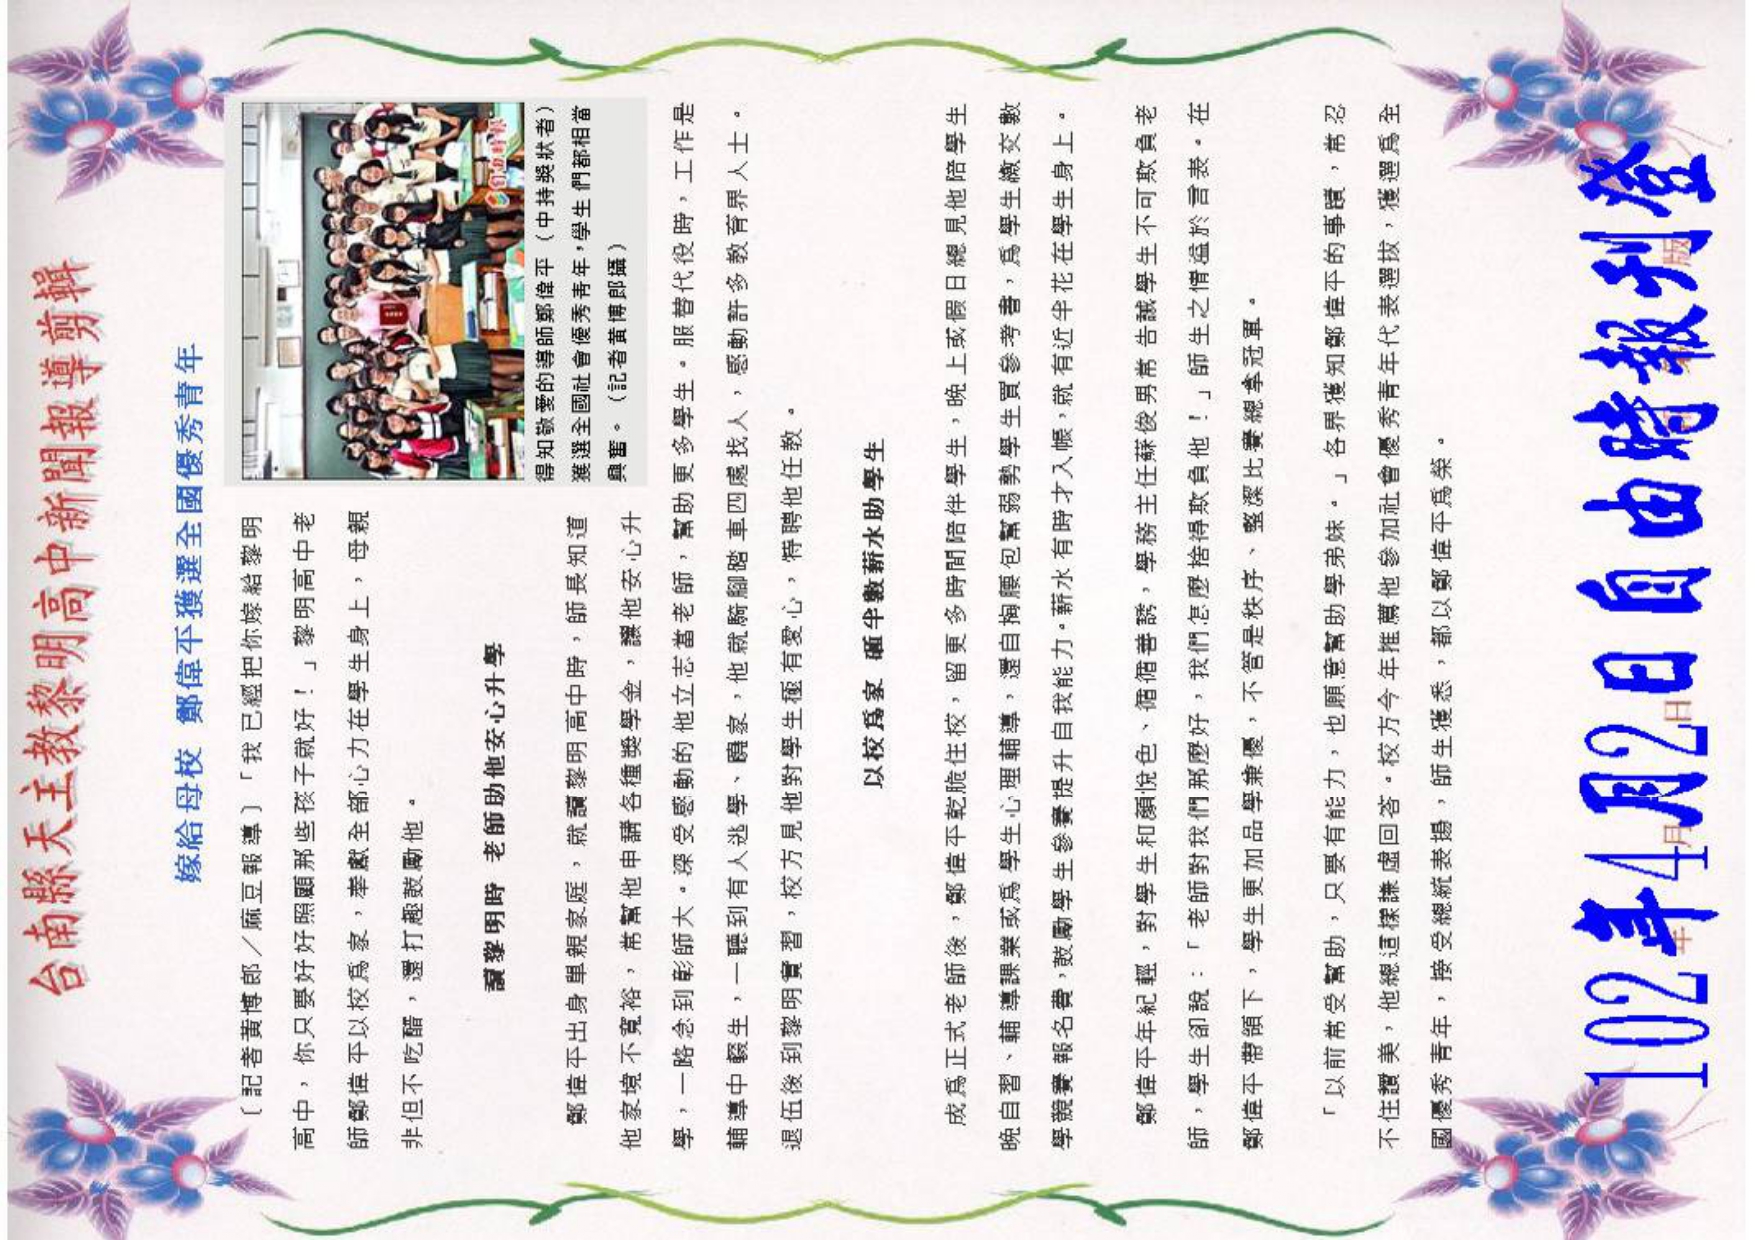 台南縣天主教黎明高中新聞報導剪輯
嫁給母校 鄭偉平獲選全國優秀青年
〔記者黃博郎／麻豆報導〕「我已經把你嫁給黎明
高中，你只要好好照顧那些孩子就好！」黎明高中老
師鄭偉平以校為家，奉獻全部心力在學生身上，母親
非但不吃醋，還打趣鼓勵他。
得知敬愛的導師鄭偉平（中持獎狀者）
獲選全國社會優秀青年，學生們都相當
興奮。（記者黃博郎攝）
讀黎明時 老師助他安心升學
鄭偉平出身單親家庭，就讀黎明高中時，師長知道
他家境不寬裕，常幫他申請各種獎學金，讓他安心升
學，一路念到彰師大。深受感動的他立志當老師，幫助更多學生。服替代役時，工作是
輔導中輟生，一聽到有人逃學、蹺家，他就騎腳踏車四處找人，感動許多教育界人士。
退伍後到黎明實習，校方見他對學生極有愛心，特聘他任教。
以校為家 砸半數薪水助學生
成為正式老師後，鄭偉平乾脆住校，留更多時間陪伴學生，晚上或假日總見他陪學生
晚自習、輔導課業或為學生心理輔導，還自掏腰包幫弱勢學生買參考書，為學生繳交數
學競賽報名費，鼓勵學生參賽提升自我能力。薪水有時才入帳，就有近半花在學生身上。
鄭偉平年紀輕，對學生和顏悅色、循循善誘，學務主任蘇俊男常告誡學生不可欺負老
師，學生卻說：「老師對我們那麼好，我們怎麼捨得欺負他！」師生之情溢於言表。在
鄭偉平帶領下，學生更加品學兼優，不管是秩序、整潔比賽總拿冠軍。
「以前常受幫助，只要有能力，也願意幫助學弟妹。」各界獲知鄭偉平的事蹟，常忍
不住讚美，他總這樣謙虛回答。校方今年推薦他參加社會優秀青年代表選拔，獲選為全
國優秀青年，接受總統表揚，師生獲悉，都以鄭偉平為榮。
102年4月2日自由時報刊登
年 月 日 版